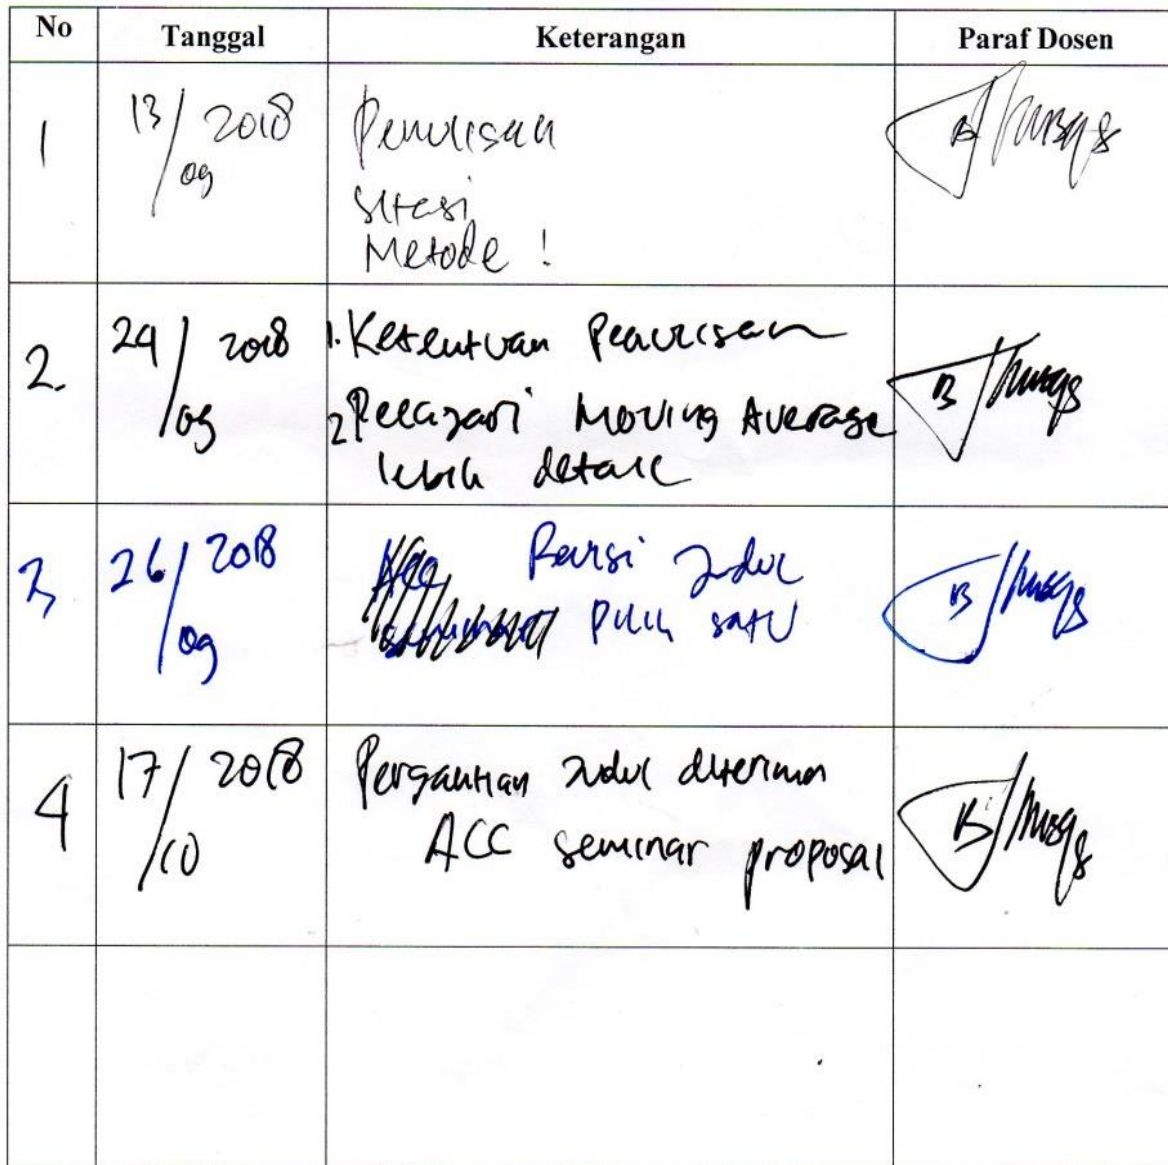 No Tanggal Keterangan Paraf Dosen
1 13/09 2018 Penulisan
sitasi
Metode !
2. 24/09 2018 1. Ketentuan Penulisan
2 Pelajari Moving Average
lebih detail
3 26/09 2018 Revisi Judul
Pilih satu
4 17/10 2018 Pergantian Judul diterima
ACC seminar proposal